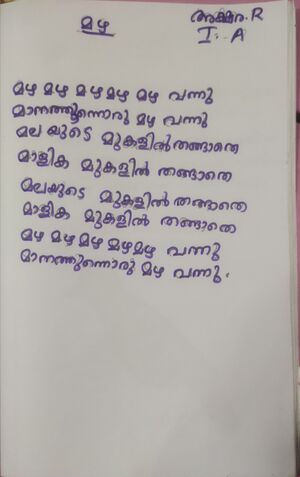 മഴ
അക്ഷര. R
I - A
മഴ മഴ മഴ മഴ മഴ വന്നു
മാനത്തൂന്നൊരു മഴ വന്നു
മല യുടെ മുകളിൽ തങ്ങാതെ
മാളിക മുകളിൽ തങ്ങാതെ
മലയുടെ മുകളിൽ തങ്ങാതെ
മാളിക മുകളിൽ തങ്ങാതെ
മഴ മഴ മഴ മഴ മഴ വന്നു
മാനത്തുന്നൊരു മഴ വന്നു.